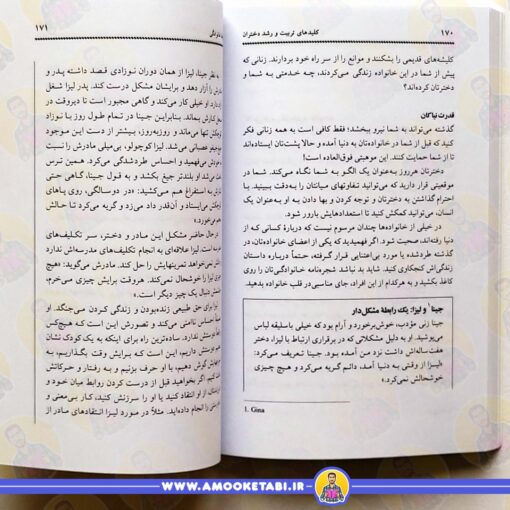 ۱۷۰
کلیدهای تربیت و رشد دختران
کلیشه‌های قدیمی را بشکنند و موانع را از سر راه خود بردارند. زنانی که
پیش از شما در این خانواده زندگی می‌کردند، چه خدمتی به شما و
دخترتان کرده‌اند؟
قدرت نیاکان
گذشته می‌تواند به شما نیرو ببخشد؛ فقط کافی است به همه زنانی فکر
کنید که قبل از شما در خانواده‌تان به دنیا آمده و حالا پشت‌تان ایستاده‌اند
تا از شما حمایت کنند. این موهبتی فوق‌العاده است!
دخترتان هرروز به عنوان یک الگو به شما نگاه می‌کند. شما در
موقعیتی قرار دارید که می‌توانید تفاوتهای میانتان را به‌دقت ببینید. با
احترام گذاشتن به دخترتان و توجه کردن و بها دادن به او به عنوان یک
انسان، می‌توانید کمکش کنید تا استعدادهایش بارور شود.
در خیلی از خانواده‌ها چندان مرسوم نیست که دربارهٔ کسانی که از
دنیا رفته‌اند، صحبت شود. اگر فهمیدید که یکی از اعضای خانواده‌تان، در
گذشته طردشده یا مورد بی‌اعتنایی قرار گرفته، حتماً درباره داستان
زندگی‌اش کنجکاوی کنید. شاید بد نباشد شجره‌نامه خانوادگی‌تان را روی
کاغذ بکشید و به هرکدام از این افراد، جای مناسبی در قلب خانواده بدهید.
جینا۱ و لیزا: یک رابطهٔ مشکل‌دار
جینا زنی مؤدب، خوش‌برخورد و آرام بود که خیلی باسلیقه لباس
می‌پوشید. او به دلیل مشکلاتی که در برقراری ارتباط با لیزا، دختر
هفت‌ساله‌اش داشت نزد من آمده بود. جینا تعریف می‌کرد:
«لیزا از وقتی به دنیا آمد، دائم گریه می‌کرد و هیچ چیزی
خوشحالش نمی‌کرد.»
1. Gina
۱۷۱
به نظر جینا، لیزا از همان دوران نوزادی قصد داشته پدر و
را آزار دهد و برایشان مشکل درست کند. پدر لیزا شغل
دارد. او خیلی کار می‌کند و گاهی مجبور است تا دیروقت در
کارش بماند. بنابراین جینا در تمام طول روز با لیزا
تنها می‌ماند و روزبه‌روز، بیشتر از دست این موجود
عصبانی می‌شد. لیزا کوچولو، بی‌میلی مادرش را نسبت
می‌فهمید و احساس طردشدگی می‌کرد. همین ترس
می‌شد او بلندتر جیغ بکشد و به قول جینا، حتی
به استفراغ هم می‌کشید: «در دوسالگی، روی پاهای
می‌ایستاد و آن‌قدر داد می‌زد و گریه می‌کرد تا حالش
می‌خورد.»
درحال حاضر مشکل این مادر و دختر، سر تکلیف‌های
لیزا علاقه‌ای به انجام تکلیف‌های مدرسه‌اش ندارد
نمی‌خواهد تمرینهایش را حل کند. مادرش می‌گوید: «هیچ
لیزا را خوشحال نمی‌کند. هروقت برایش چیزی می‌خرم،
دنبال یک چیز دیگر است.»
لیزا برای حق طبیعی زنده‌بودن و زندگی کردن می‌جنگد. او
احساس ناامنی می‌کند و تصورش این است که هیچ‌کس
ندارد. ساده‌ترین راه برای اینکه به یک کودک نشان
دوستش داریم، این است که برایش وقت بگذاریم، به
گوش دهیم، با او حرف بزنیم و به رفتار و حرکاتش
کنیم. اگر بخواهید قبل از درست کردن روابط میان خود و
از او انتقاد کنید یا او را سرزنش کنید، کار بی‌معنی و
را انجام داده‌اید. مثلاً در مورد لیزا انتقادهای مادر از
WWW.AMOOKETABI.IR